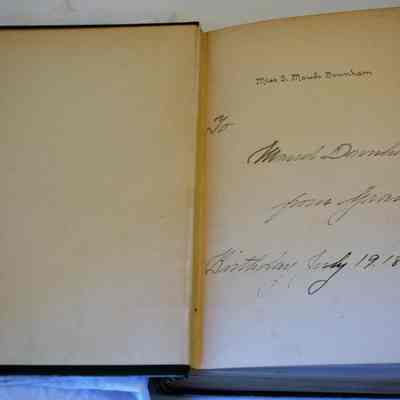 Miss S. Maude Dounham
To
Maud Dounh
from Gran
Birthday July 19. 18